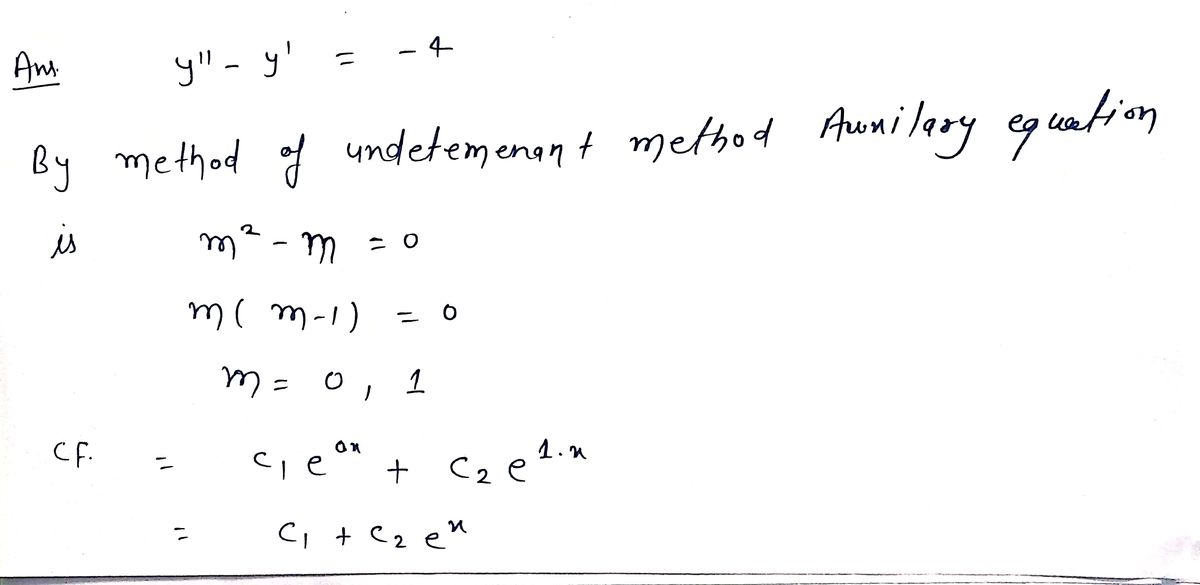 Ans. y'' - y' = - 4
By method of undetemenant method Auxilary equation
is m² - m = 0
m( m-1) = 0
m = 0 , 1
C.F. = c₁ e⁰ˣ + c₂ e¹·ˣ
= c₁ + c₂ eˣ